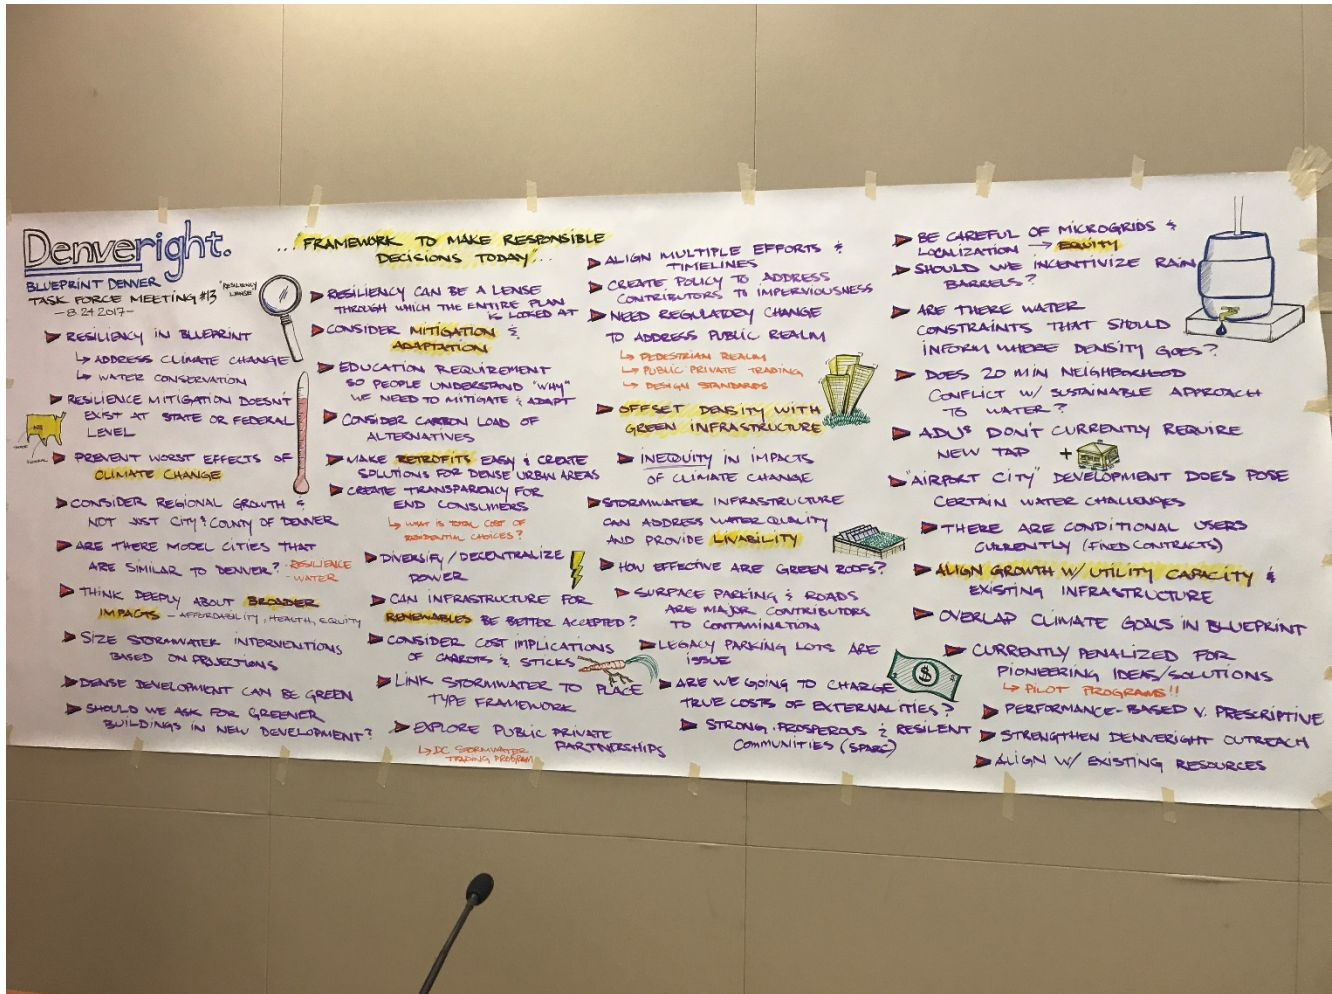 Denveright.
BLUEPRINT DENVER
TASK FORCE MEETING #13
- 8.24.2017 -
"RESILIENCY
LENSE"
RESILIENCY IN BLUEPRINT
↳ ADDRESS CLIMATE CHANGE
↳ WATER CONSERVATION
RESILIENCE MITIGATION DOESN'T
EXIST AT STATE OR FEDERAL
LEVEL
PREVENT WORST EFFECTS OF
CLIMATE CHANGE
CONSIDER REGIONAL GROWTH &
NOT JUST CITY & COUNTY OF DENVER
ARE THERE MODEL CITIES THAT
ARE SIMILAR TO DENVER? - RESILIENCE
- WATER
THINK DEEPLY ABOUT BROADER
IMPACTS - AFFORDABILITY, HEALTH, EQUITY
SIZE STORMWATER INTERVENTIONS
BASED ON PROJECTIONS
DENSE DEVELOPMENT CAN BE GREEN
SHOULD WE ASK FOR GREENER
BUILDINGS IN NEW DEVELOPMENT?
...FRAMEWORK TO MAKE RESPONSIBLE
DECISIONS TODAY...
RESILIENCY CAN BE A LENSE
THROUGH WHICH THE ENTIRE PLAN
IS LOOKED AT
CONSIDER MITIGATION &
ADAPTATION
EDUCATION REQUIREMENT
SO PEOPLE UNDERSTAND "WHY"
WE NEED TO MITIGATE & ADAPT
CONSIDER CARBON LOAD OF
ALTERNATIVES
MAKE RETROFITS EASY & CREATE
SOLUTIONS FOR DENSE URBAN AREAS
CREATE TRANSPARENCY FOR
END CONSUMERS
↳ WHAT IS TOTAL COST OF
RESIDENTIAL CHOICES?
DIVERSIFY/DECENTRALIZE
POWER
CAN INFRASTRUCTURE FOR
RENEWABLES BE BETTER ACCEPTED?
CONSIDER COST IMPLICATIONS
OF CARROTS & STICKS
LINK STORMWATER TO PLACE
TYPE FRAMEWORK
EXPLORE PUBLIC PRIVATE
PARTNERSHIPS
↳ DC STORMWATER
TRADING PROGRAM
ALIGN MULTIPLE EFFORTS &
TIMELINES
CREATE POLICY TO ADDRESS
CONTRIBUTORS TO IMPERVIOUSNESS
NEED REGULATORY CHANGE
TO ADDRESS PUBLIC REALM
↳ PEDESTRIAN REALM
↳ PUBLIC PRIVATE TRADING
↳ DESIGN STANDARDS
OFFSET DENSITY WITH
GREEN INFRASTRUCTURE
INEQUITY IN IMPACTS
OF CLIMATE CHANGE
STORMWATER INFRASTRUCTURE
CAN ADDRESS WATER QUALITY
AND PROVIDE LIVABILITY
HOW EFFECTIVE ARE GREEN ROOFS?
SURFACE PARKING & ROADS
ARE MAJOR CONTRIBUTORS
TO CONTAMINATION
LEGACY PARKING LOTS ARE
ISSUE
ARE WE GOING TO CHARGE
TRUE COSTS OF EXTERNALITIES?
$
STRONG, PROSPEROUS & RESILIENT
COMMUNITIES (SPARC)
BE CAREFUL OF MICROGRIDS &
LOCALIZATION → EQUITY
SHOULD WE INCENTIVIZE RAIN
BARRELS?
ARE THERE WATER
CONSTRAINTS THAT SHOULD
INFORM WHERE DENSITY GOES?
DOES 20 MIN NEIGHBORHOOD
CONFLICT W/ SUSTAINABLE APPROACH
TO WATER?
ADU'S DON'T CURRENTLY REQUIRE
NEW TAP +
"AIRPORT CITY" DEVELOPMENT DOES POSE
CERTAIN WATER CHALLENGES
THERE ARE CONDITIONAL USERS
CURRENTLY (FIXED CONTRACTS)
ALIGN GROWTH W/ UTILITY CAPACITY &
EXISTING INFRASTRUCTURE
OVERLAP CLIMATE GOALS IN BLUEPRINT
CURRENTLY PENALIZED FOR
PIONEERING IDEAS/SOLUTIONS
↳ PILOT PROGRAMS!!
PERFORMANCE-BASED V. PRESCRIPTIVE
STRENGTHEN DENVERIGHT OUTREACH
ALIGN W/ EXISTING RESOURCES